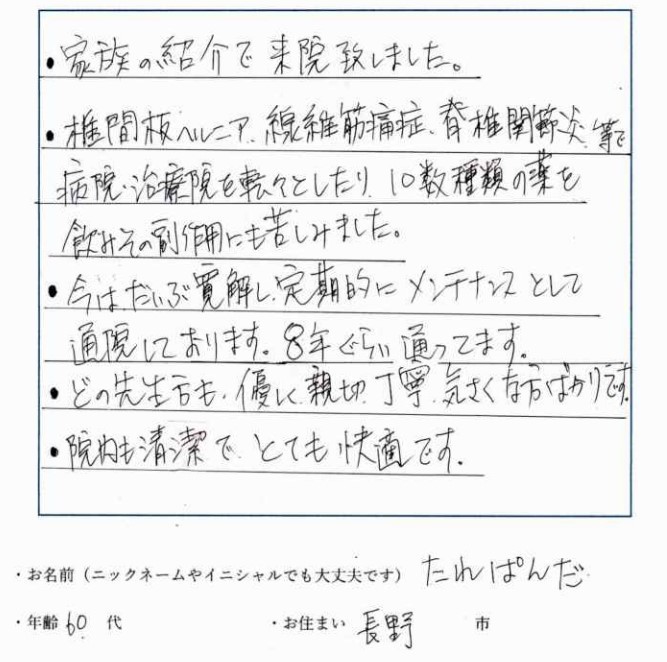 ・家族の紹介で来院致しました。
・椎間板ヘルニア、線維筋痛症、脊椎関節炎等で
病院・治療院を転々としたり、10数種類の薬を
飲みその副作用にも苦しみました。
・今はだいぶ寛解し、定期的にメンテナンスとして
通院しております。8年ぐらい通ってます。
・どの先生方も、優しく、親切、丁寧、気さくな方ばかりです。
・院内も清潔で、とても快適です。
・お名前（ニックネームやイニシャルでも大丈夫です） たれぱんだ
・年齢 60 代 ・お住まい 長野 市